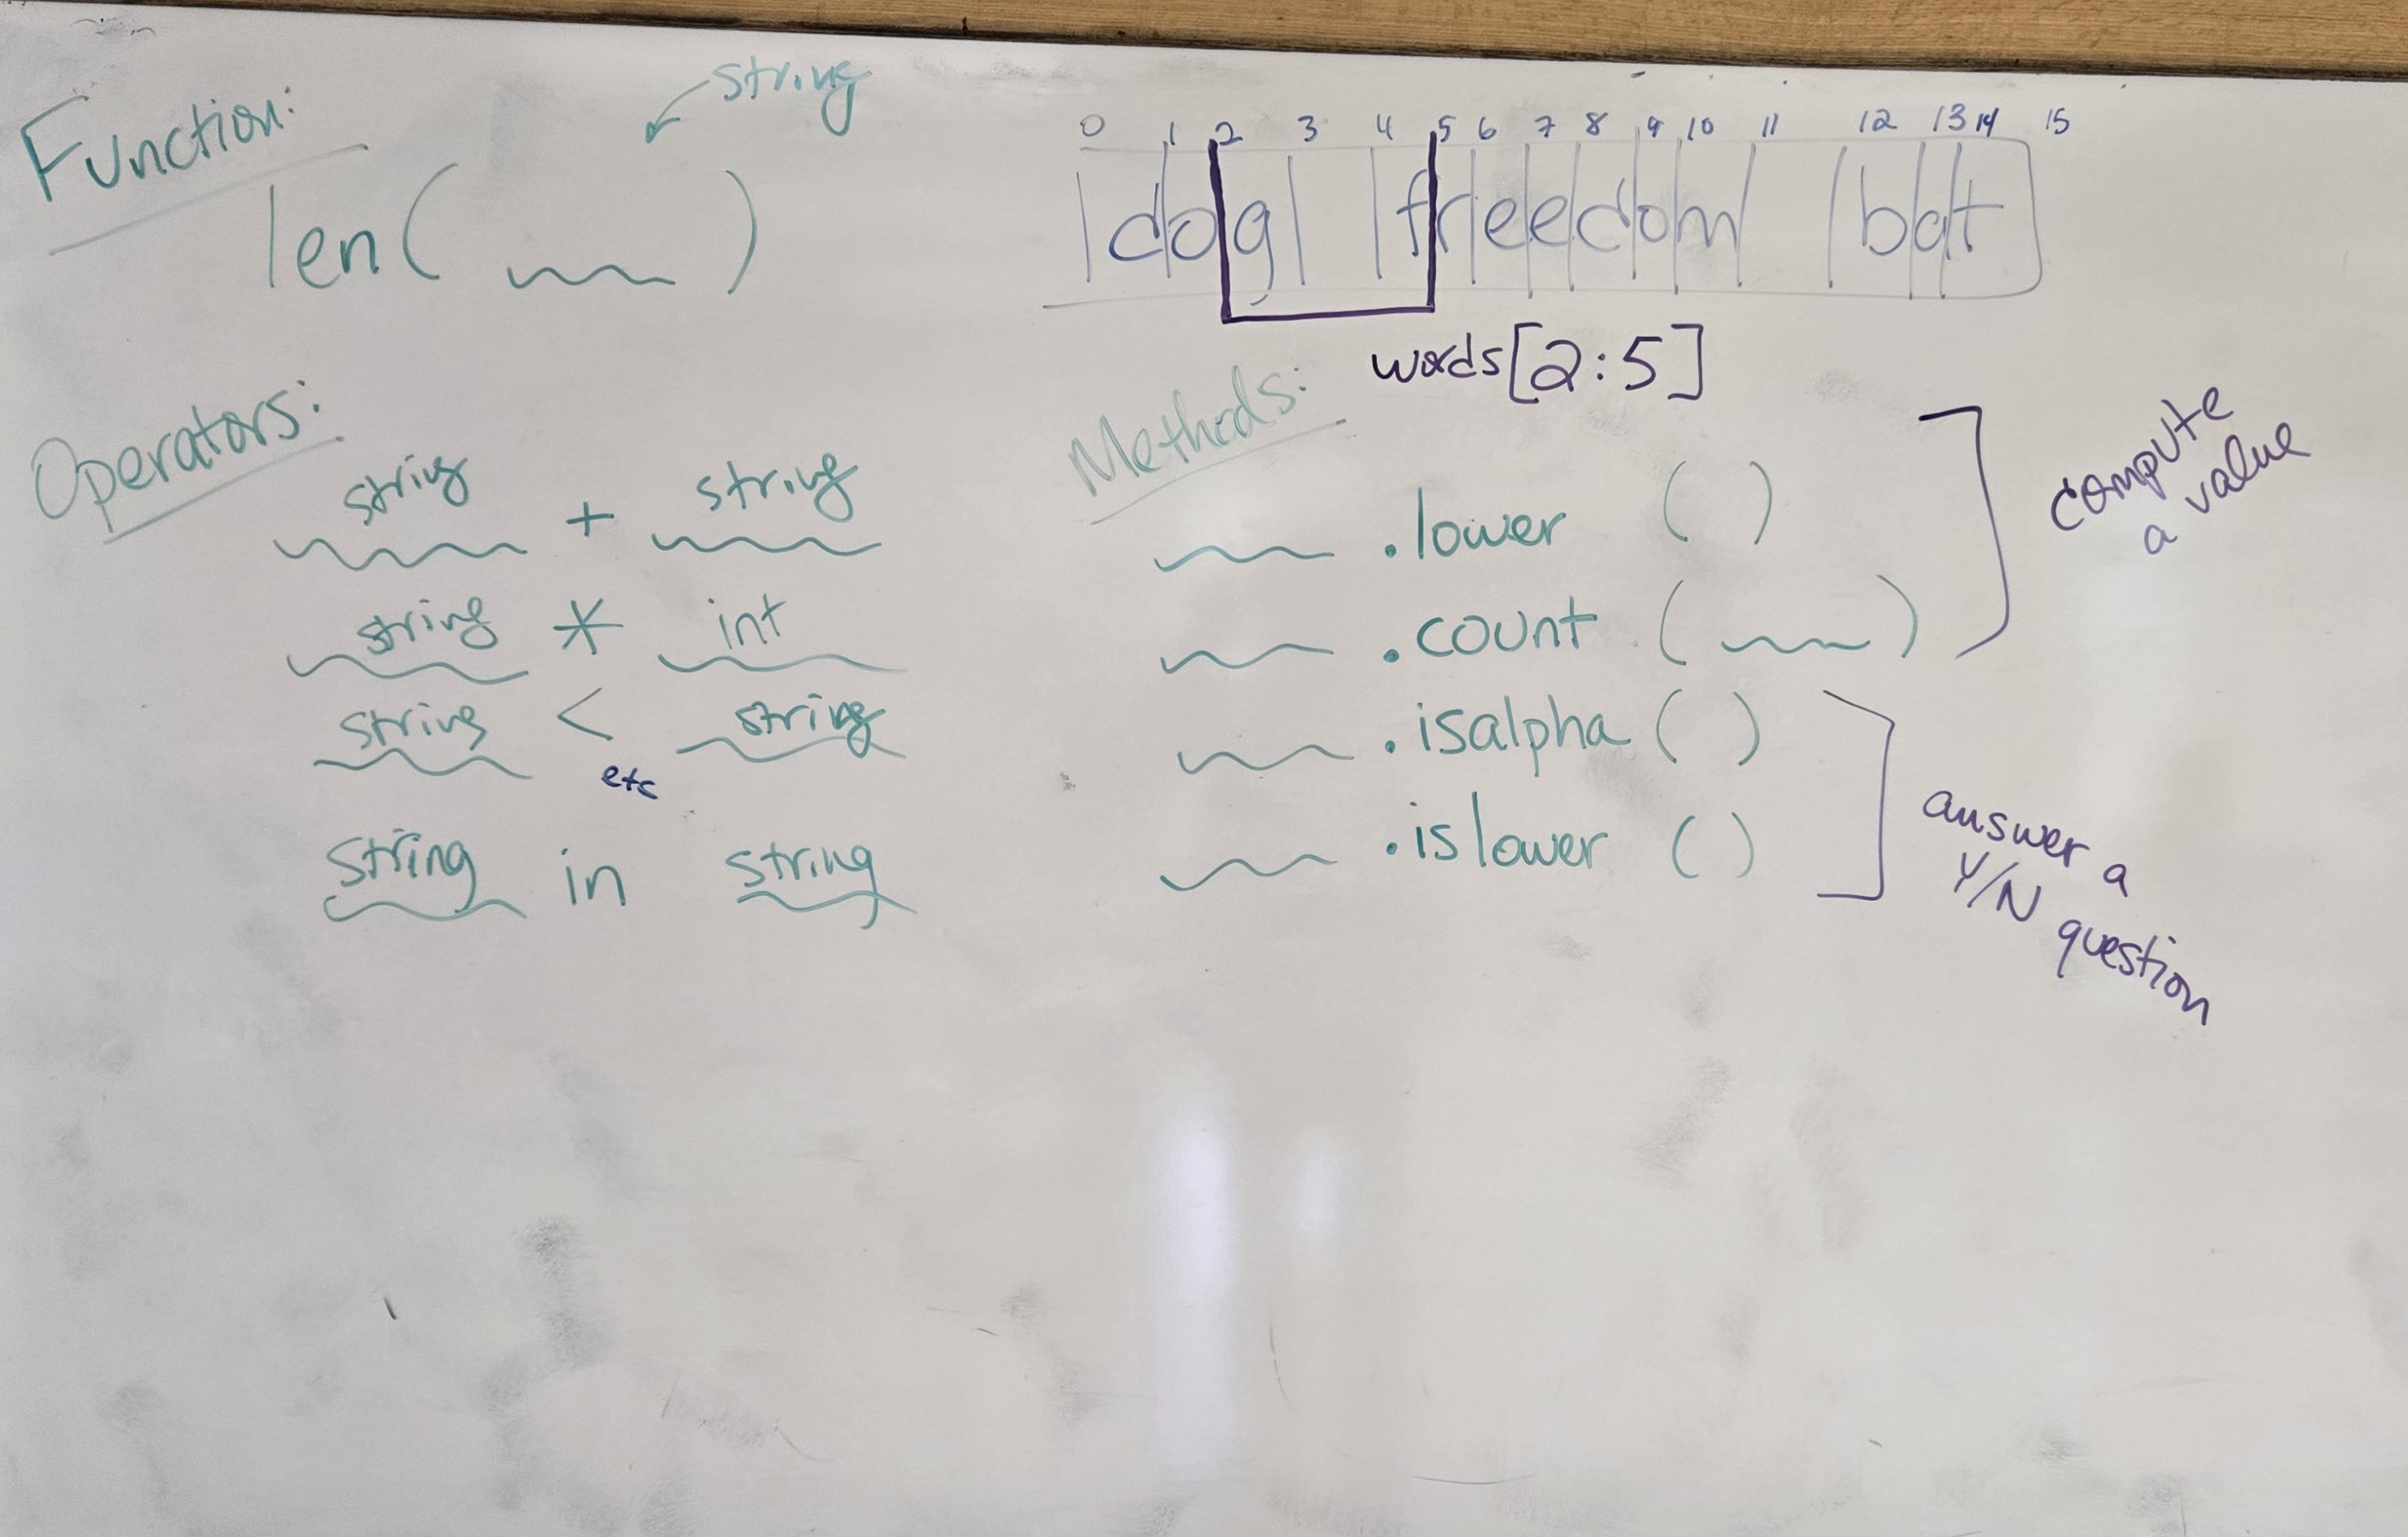 Function:
string
len( )
0 1 2 3 4 5 6 7 8 9 10 11 12 13 14 15
dog freedom bat
words[2:5]
Operators:
string + string
string * int
string < string
etc
string in string
Methods:
.lower ( )
.count ( )
.isalpha ( )
.islower ( )
compute
a value
answer a
Y/N question